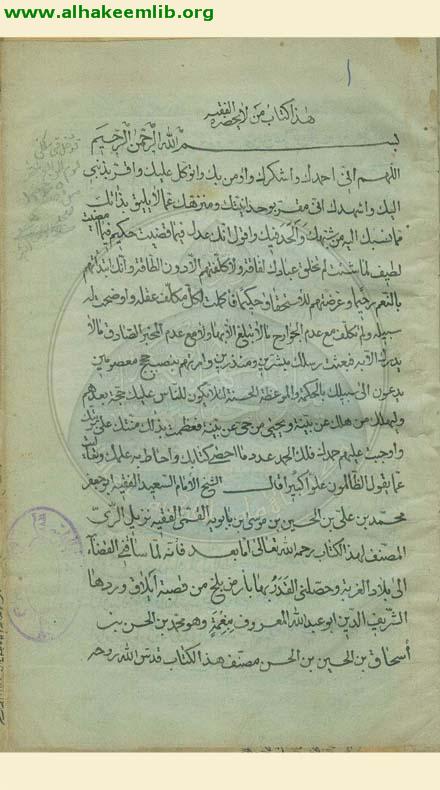 www.alhakeemlib.org
هذا كتاب من لايحضره الفقيه
بسم الله الرحمن الرحيم
اللهم اني احمدك واشكرك واومن بك واتوكل عليك واقر بذنبي
اليك واشهدك اني مقر بوحدانيتك ومنزهك عما لايليق بذاتك
مما نسبك اليه من شبهك والحد فيك واقول انك عدل فيما قضيت حكيم فيما امضيت
لطيف لما شئت لم تخلق عبادك لفاقة ولا كلفتهم الا دون الطاقة وانك ابتدأتهم
بالنعم رحيما وعرضتهم للاستحقاق حكيما فاكملت لكل مكلف عقله واوضحت له
سبيله ولم تكلف مع عدم الجوارح ما لايبلغ الا بها ولا مع عدم المخبر الصادق ما لا
يدرك الا به فبعثت رسلك مبشرين ومنذرين وامرتهم بنصب حجج معصومين
يدعون الى سبيلك بالحكمة والموعظة الحسنة لئلا يكون للناس عليك حجة بعدهم
وليهلك من هلك عن بينة ويحيى من حي عن بينة فعظمت بذلك منتك على بريتك
واوجبت عليهم حمدك فلك الحمد عدد ما احصى كتابك واحاط به علمك وتعاليت
عما يقول الظالمون علوا كبيرا قال الشيخ الامام السعيد الفقيه ابو جعفر
محمد بن علي بن الحسين بن موسى بن بابويه القمي الفقيه نزيل الري
المصنف لهذا الكتاب رحمه الله تعالى اما بعد فانه لما ساقني القضاء
الى بلاد الغربة وحصلني القدر بها بارض بلخ من قصبة ايلاق وردها
الشريف الدين ابو عبد الله المعروف بنعمة وهو محمد بن الحسن بن
اسحاق بن الحسين بن الحسن مصنف هذ الكتاب قدس الله روحه